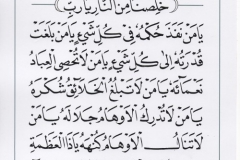 خَلِّصْنَا مِنَ النَّارِ يَا رَبِّ
يَا مَنْ نَفَذَ حُكْمُهُ فِي كُلِّ شَيْءٍ يَا مَنْ بَلَغَتْ
قُدْرَتُهُ إِلَى كُلِّ شَيْءٍ يَا مَنْ لَا تُحْصِي الْعِبَادُ
نَعْمَائَهُ يَا مَنْ لَا تَبْلُغُ الْخَلَائِقُ شُكْرَهُ
يَا مَنْ لَا تُدْرِكُ الْأَوْهَامُ جَلَالَهُ يَا مَنْ
لَا تَنَالُ الْأَوْهَامُ كُنْهَهُ يَا ذَا الْعَظَمَةِ